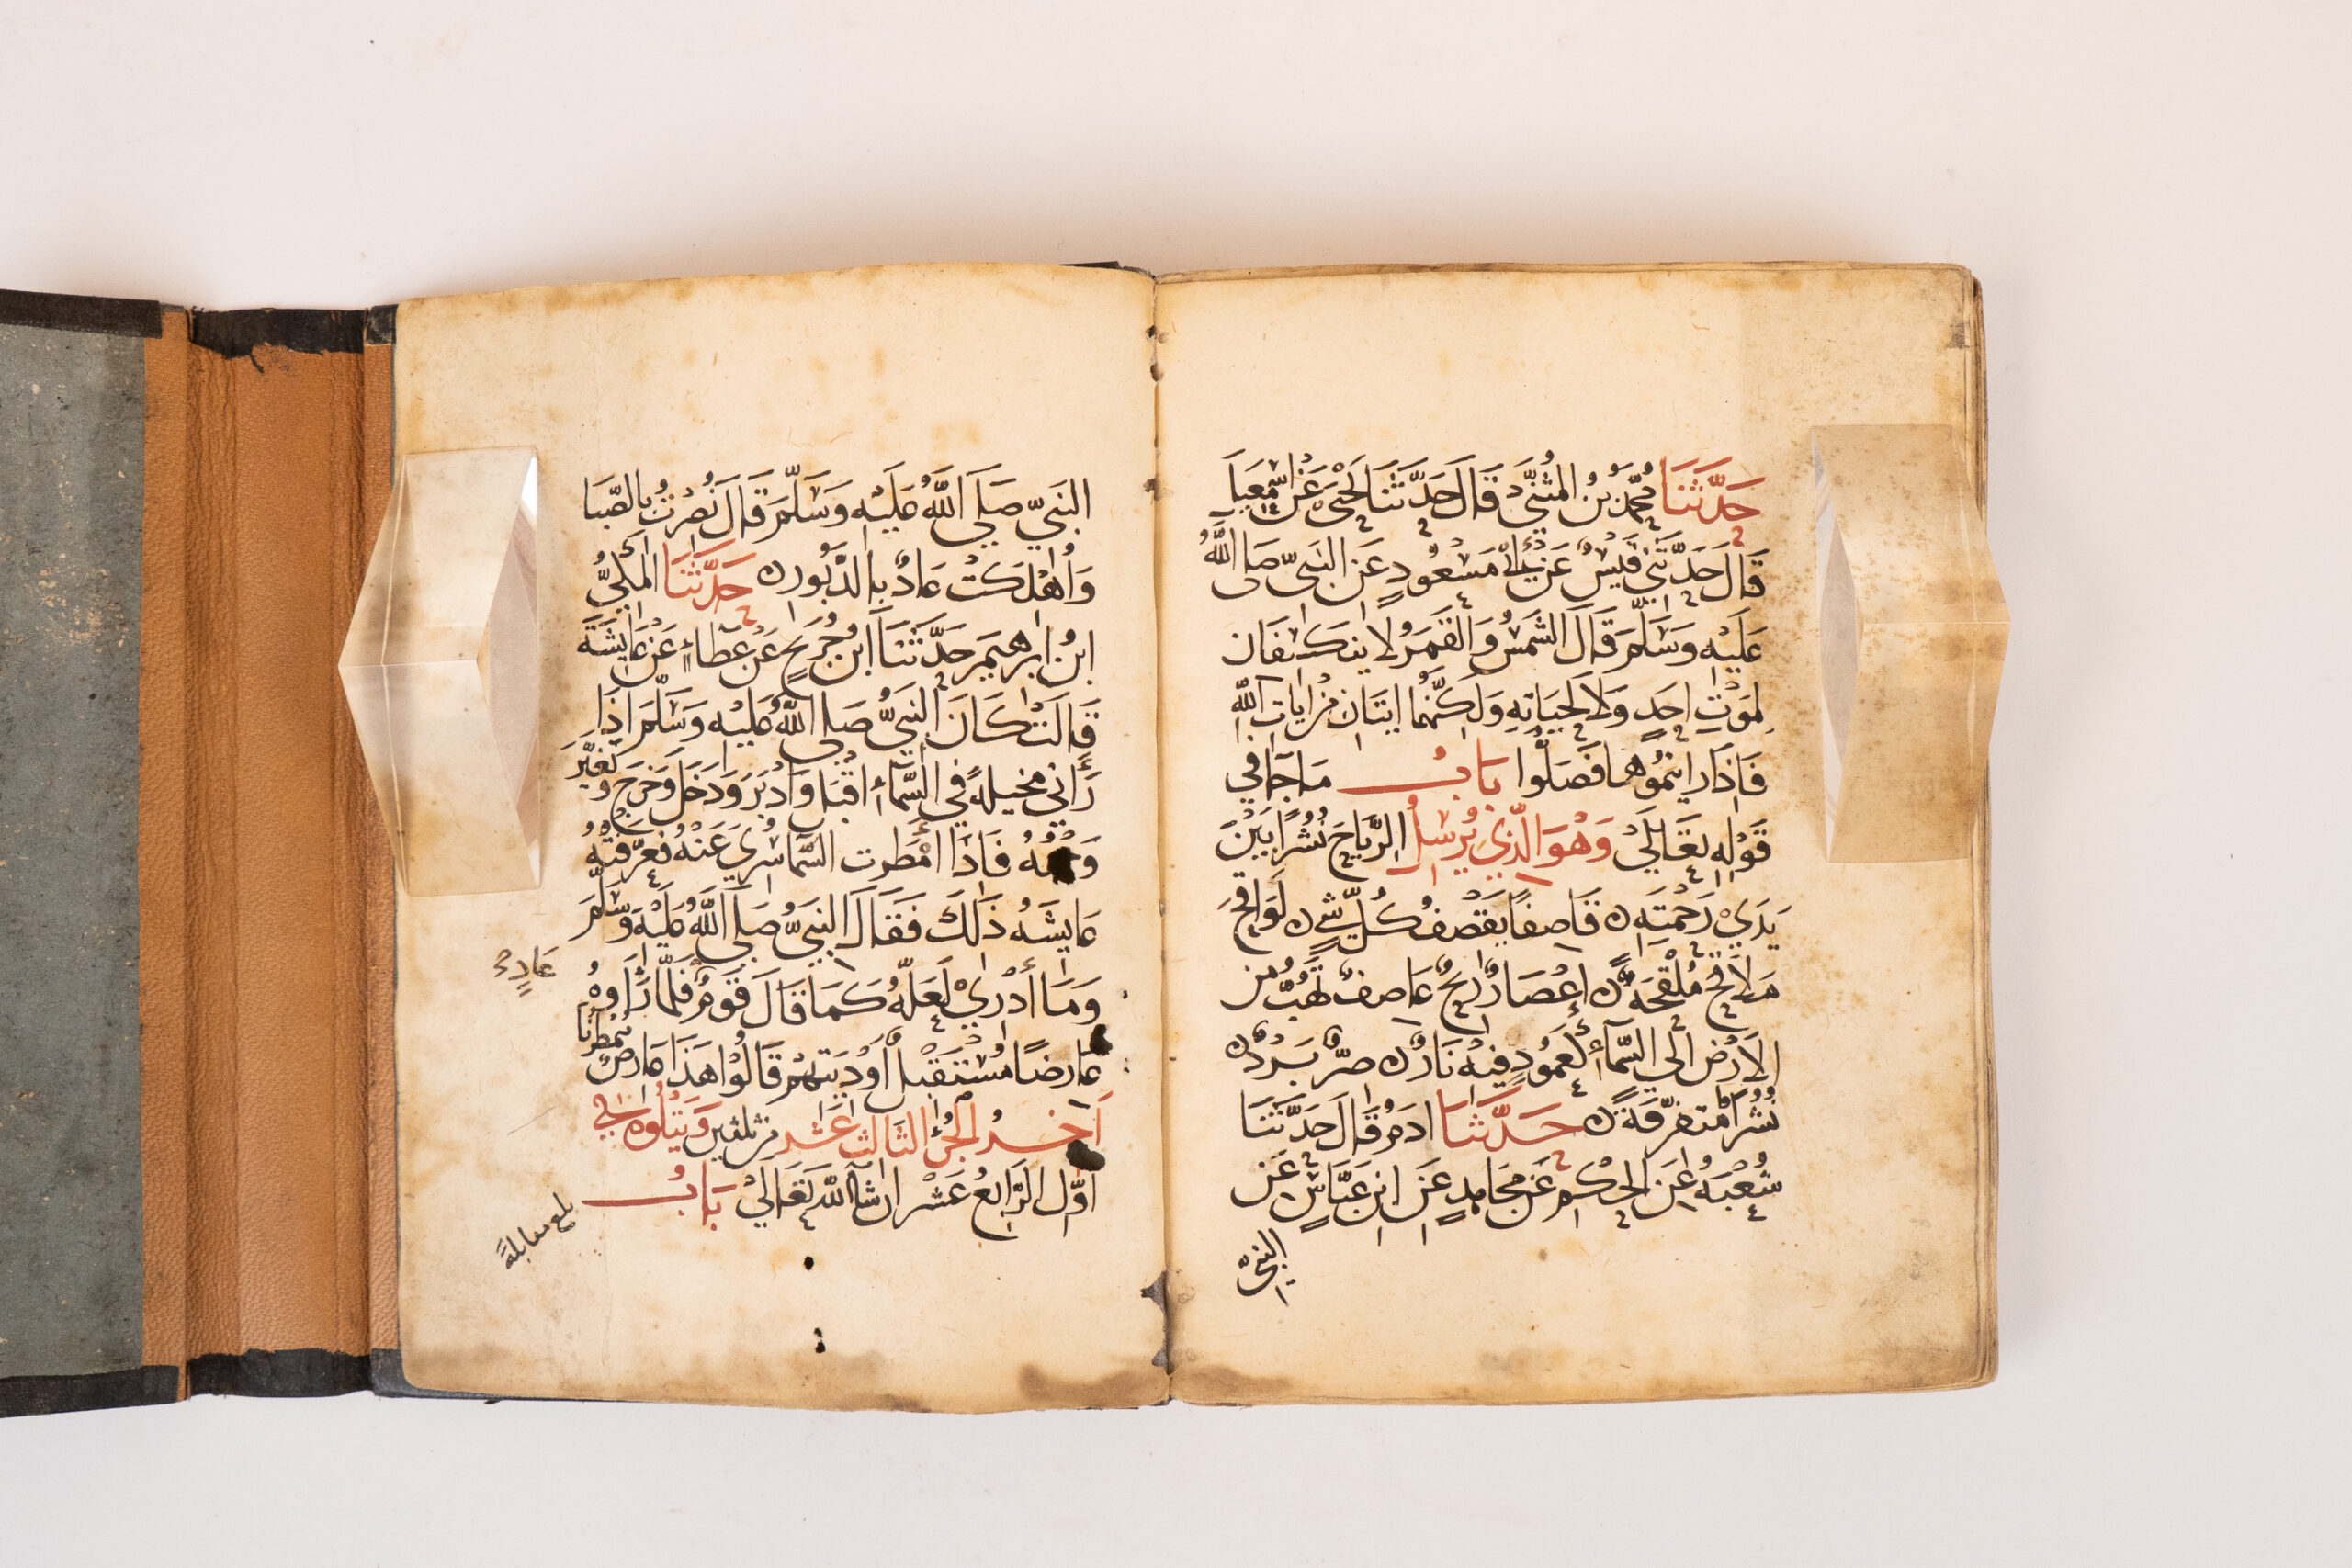 حَدَّثَنَا مُحَمَّدُ بْنُ المُثَنَّى قَالَ حَدَّثَنَا يَحْيَى عَنْ اسْمَعِيلَ
قَالَ حَدَّثَنِي قَيْسٌ عَنْ أَبِي مَسْعُودٍ عَنِ النَّبِيِّ صَلى اللَّهُ
عَلَيْهِ وَسَلَّمَ قَالَ الشَّمْسُ وَالقَمَرُ لا ينكَسِفَانِ
لِمَوْتِ احَدٍ وَلَا لِحَيَاتِهِ وَلَكِنَّهُمَا ايتَانِ مِنْ ايَاتِ اللَّهِ
فَاِذَا رَايتمُوْهما فَصَلُّوا بَابُ مَا جَا في
قَوْلِهِ تَعَالَى وَهُوَ الَّذِي يُرْسِلُ الرِّيَاحَ نُشُرًا بَيْنَ
يَدَيْ رَحْمَتِهِ ن قَاصِفًا يَقْصِفُ كُلَّ شَيٍ ن لَوَاقِحَ
مَلَاقِحَ مُلْقِحَةً ن اِعْصَارٌ رِيحٌ عَاصِفٌ تَهُبُّ مِنَ
الاَرْضِ الَى السَّمَاءِ كَعَمُودٍ فِيْهِ نَارٌ ن صِرٌّ بَرْدٌ ن
نُشُرًا مُتَفَرِّقَةً ن حَدَّثَنَا ادَمُ قَالَ حَدَّثَنَا
شُعْبَةُ عَنِ الحَكَمِ عَنْ مُجَاهِدٍ عَنِ ابنِ عَبَّاسٍ عَنِ
النبيِّ
النَبيِّ صَلى اللَّهُ عَلَيْهِ وَسَلَّمَ قَالَ نُصِرْتُ بِالصَّبَا
وَاُهْلِكَتْ عَادٌ بِالدَّبُورِ ن حَدَّثَنَا المَكِّيُّ
ابنُ ابرهِيمَ حَدَّثَنَا ابنُ جُرَيْجٍ عَنْ عَطَاءٍ عَنْ عَايِشَةَ
قَالَتْ كَانَ النَبيُّ صَلى اللَّهُ عَلَيْهِ وَسَلَّمَ اذَا
رَأَى مَخيلةً فِي السَّمَاءِ اقبَلَ وَادْبَرَ وَدَخَلَ وَخَرَجَ وَتَغَيَّرَ
وَجْهُهُ فَاِذَا امْطَرت السَّمَا سُرِّيَ عَنْهُ فَعَرَّفَتْهُ
عَايشَةُ ذَلِكَ فَقَالَ النبيُّ صَلى اللَّهُ عَلَيْهِ وَسَلَّمَ
وَمَا أَدْرِيْ لَعَلَّهُ كَمَا قَالَ قَوْمٌ فَلَمَّا رَأَوْهُ
عَادٍ
عَارِضًا مُسْتَقْبِلَ أَوْدِيَتِهِمْ قَالُوْا هَذَا عَارِضٌ مُمْطِرُنَا
آخِرُ الجُزْءِ الثَالث عَشَر مِنْ ثلثين وَيَتْلُوه في
اَوَّلِ الرَّابعُ عَشْرَ ان شَآ اللَّه تَعَالَى بَابُ
بلغ مقابلة